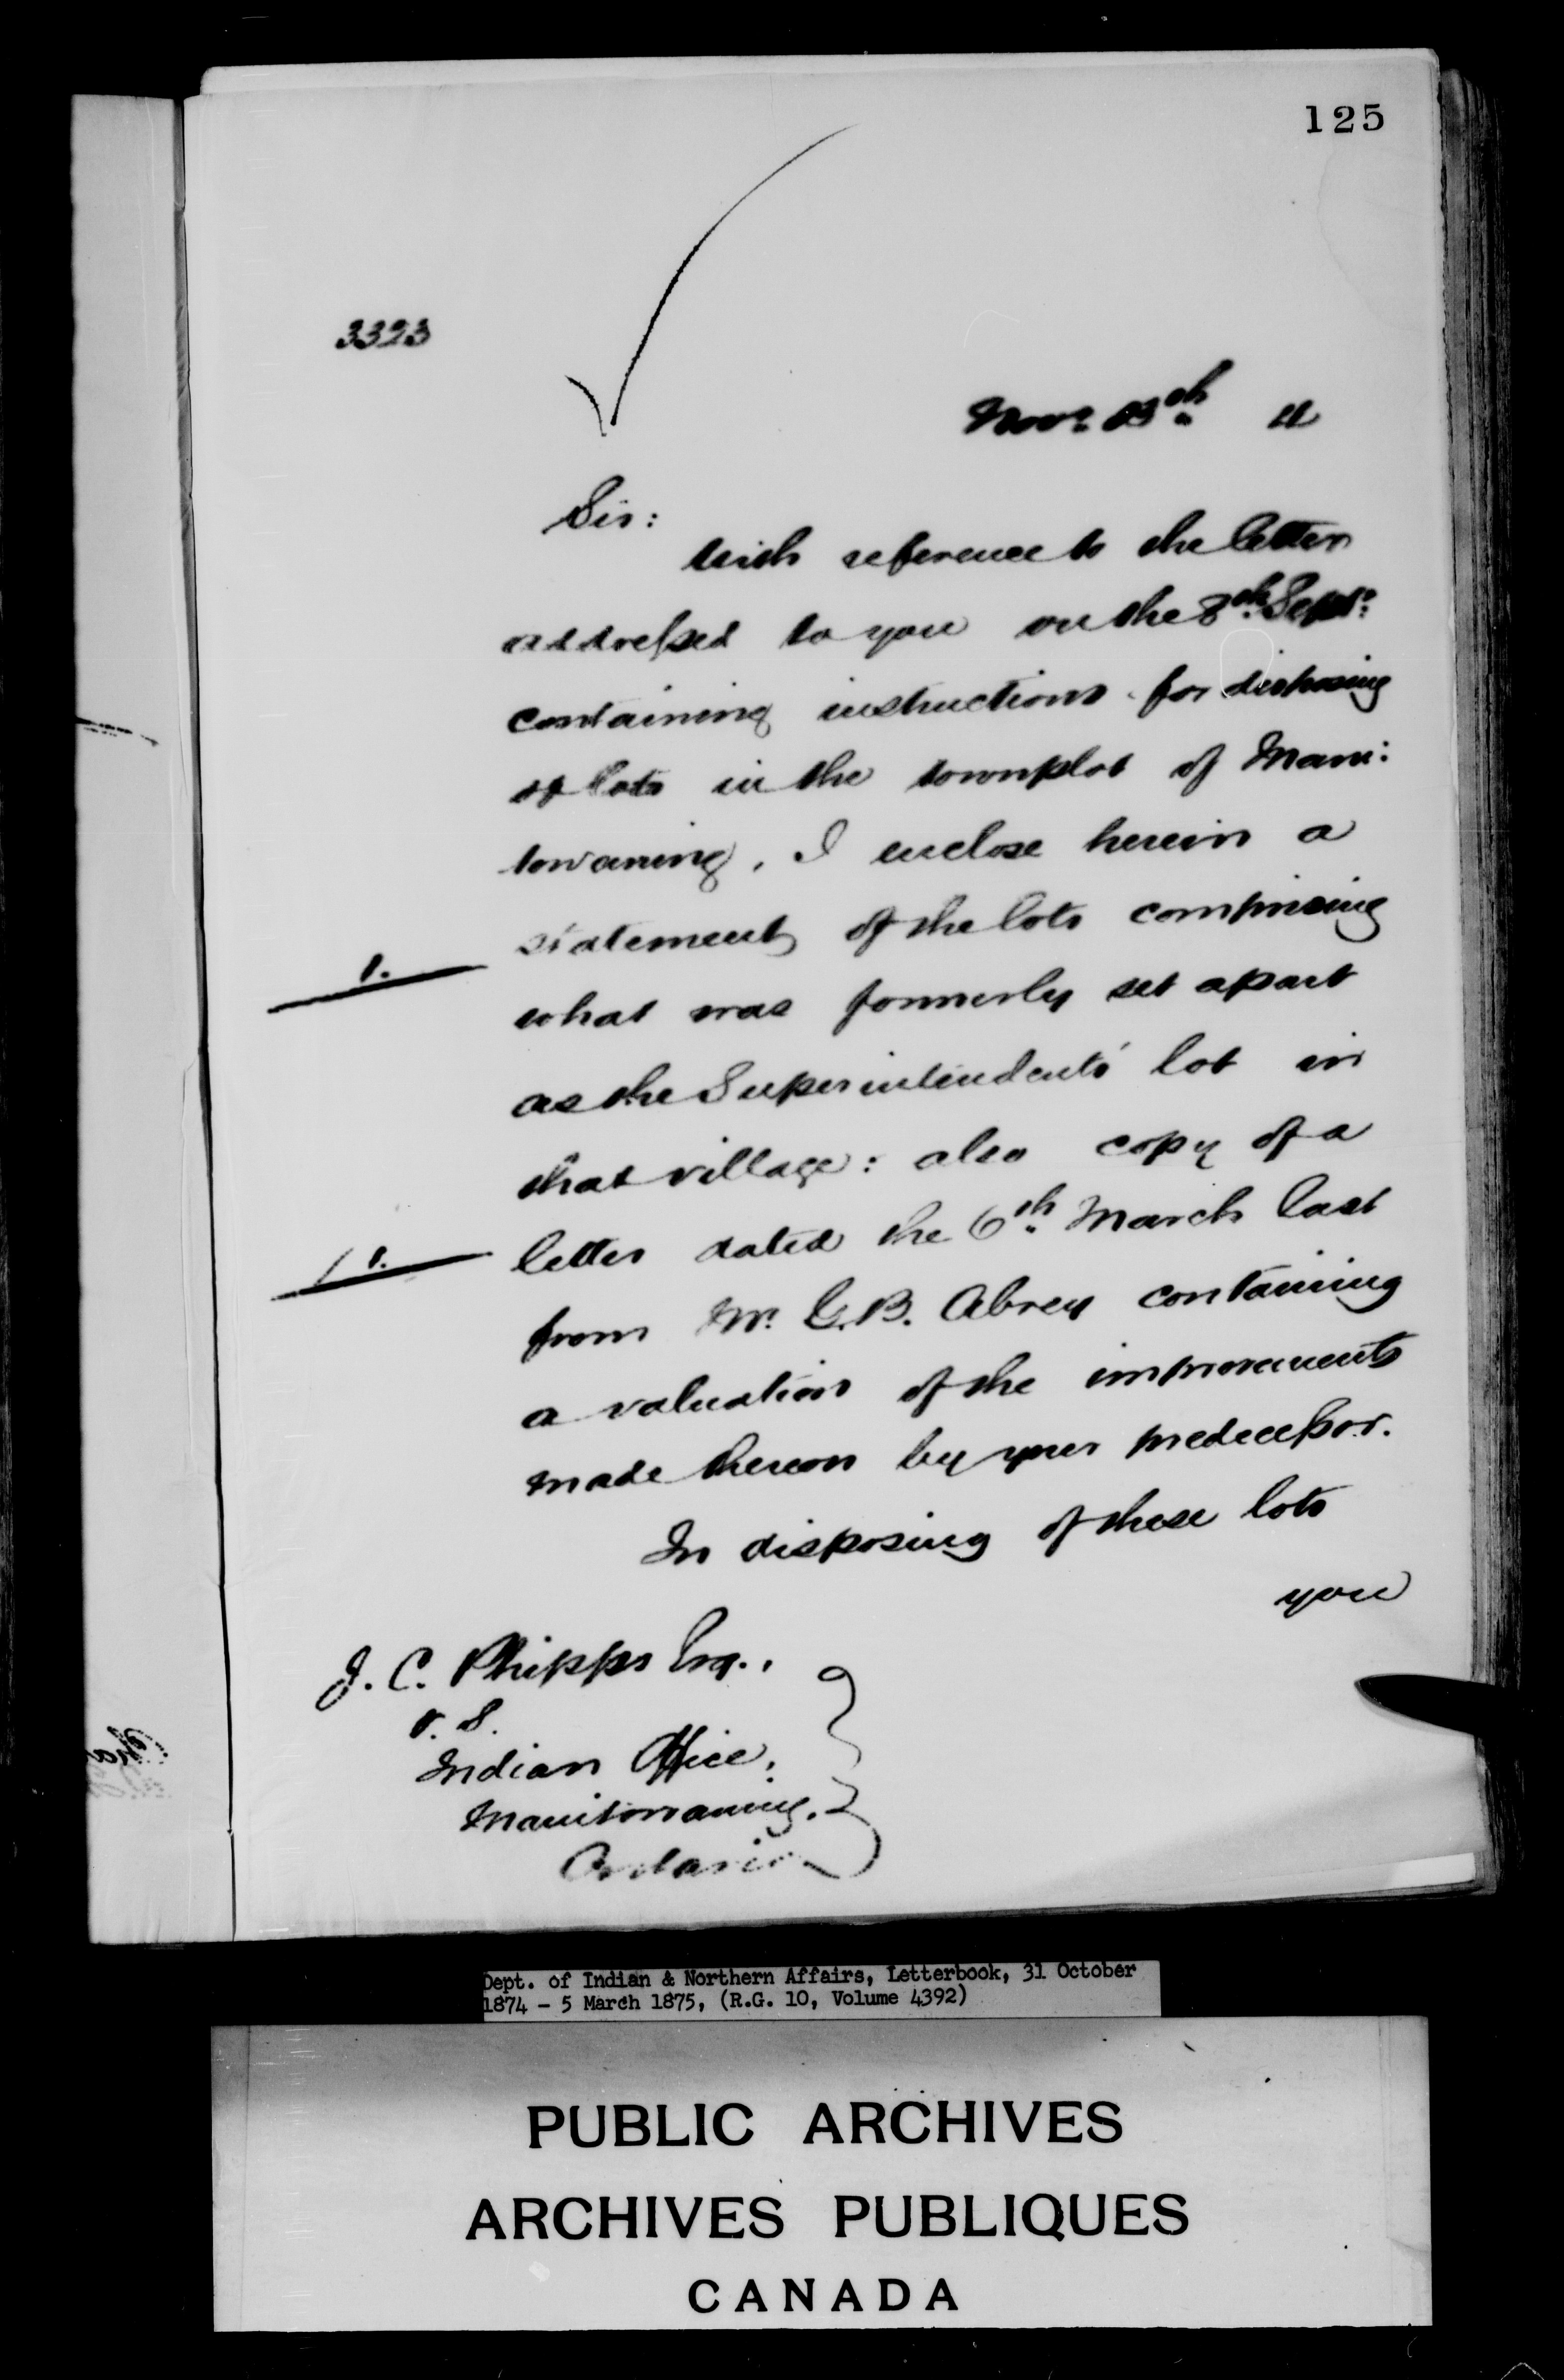 125
3323
Novr. 13th 4
Sir:
With reference to the letter
addressed to you on the 8th Septr.
containing instructions for disposing
of lots in the townplot of Mani:
towaning, I enclose herein a
statement of the lots comprising
what was formerly set apart
as the Superintendents' lot in
that village: also copy of a
letter dated the 6th March last
from Mr. G.B. Abrey containing
a valuation of the improvements
made thereon by your predecessor.
In disposing of these lots
you
J. C. Phipps Esq.,
V. S.
Indian Office,
Manitowaning,
Ontario
Dept. of Indian & Northern Affairs, Letterbook, 31 October
1874 - 5 March 1875, (R.G. 10, Volume 4392)
PUBLIC ARCHIVES
ARCHIVES PUBLIQUES
CANADA